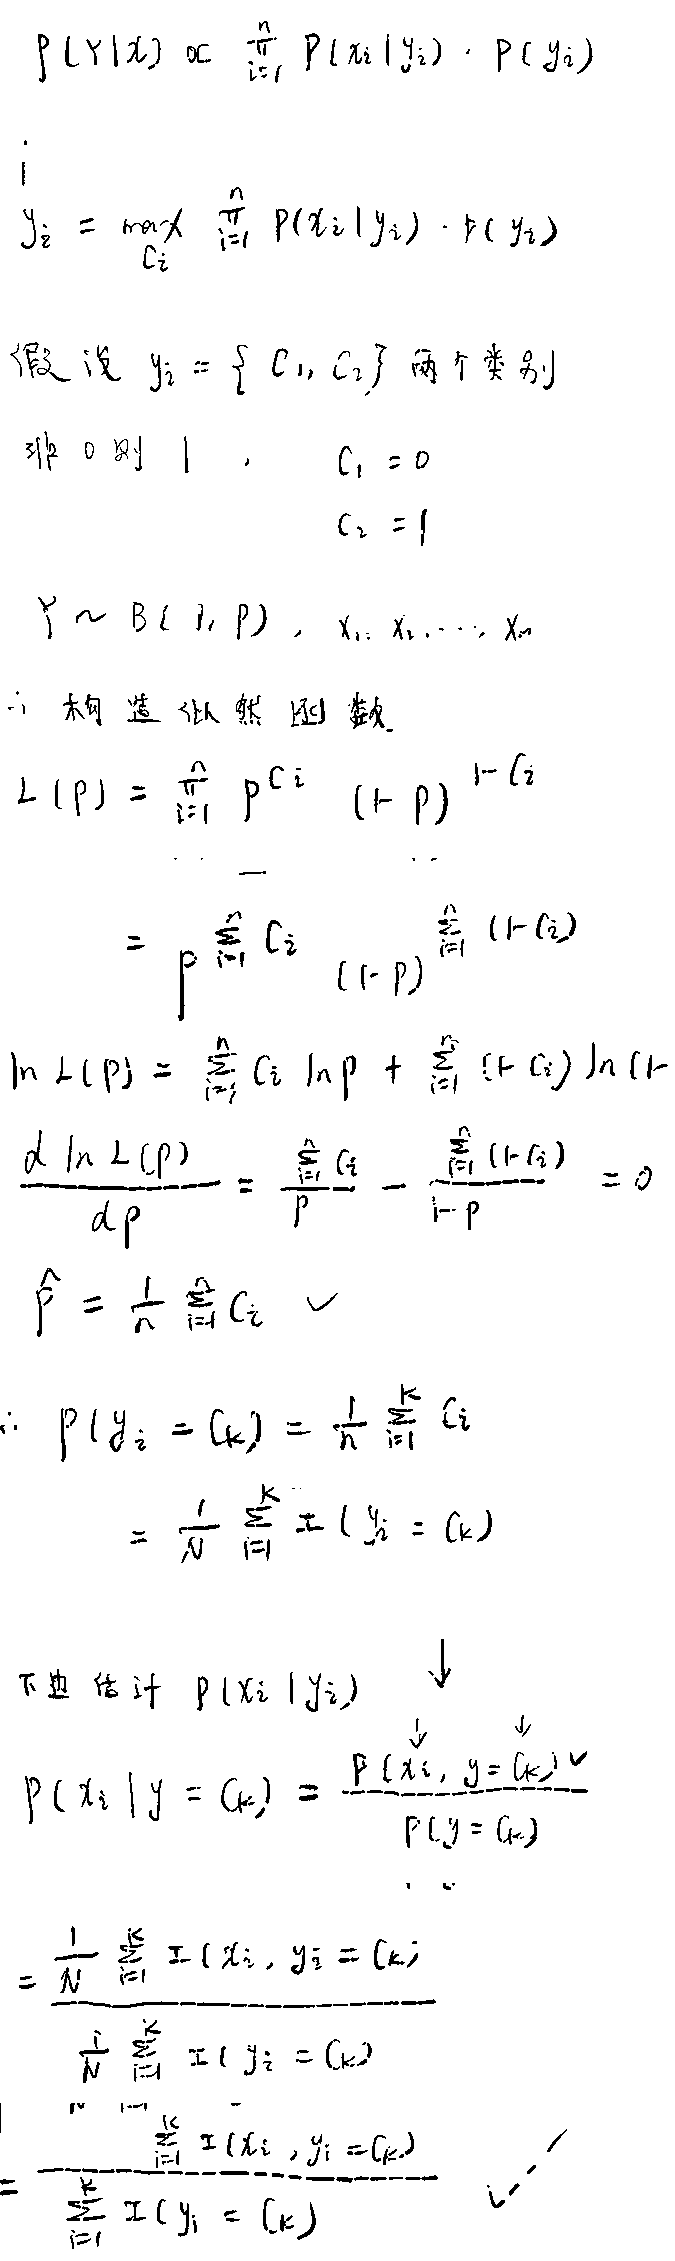 P(Y|x) ∝ ∏_{i=1}^{n} P(x_i|y_i) · P(y_i)
y_i = max_{C_i} ∏_{i=1}^{n} P(x_i|y_i) · P(y_i)
假设 y_i = {C_1, C_2} 两个类别
非0则1, C_1 = 0
C_2 = 1
Y ~ B(1, P), X_1, X_2, ..., X_n
∴ 构造似然函数
L(p) = ∏_{i=1}^{n} p^{C_i} (1-p)^{1-C_i}
= p^{∑_{i=1}^{n} C_i} (1-p)^{∑_{i=1}^{n} (1-C_i)}
ln L(p) = ∑_{i=1}^{n} C_i ln p + ∑_{i=1}^{n} (1-C_i) ln (1-
d ln L(p) / dp = ∑_{i=1}^{n} C_i / p - ∑_{i=1}^{n} (1-C_i) / 1-p = 0
p̂ = 1/n ∑_{i=1}^{n} C_i ✓
∴ P(y_i = C_k) = 1/n ∑_{i=1}^{k} C_i
= 1/N ∑_{i=1}^{K} I(y_i = C_k)
下边估计 P(x_i|y_i) ↓
P(x_i|y = C_k) = P(x_i, y = C_k) ✓ / P(y = C_k)
= 1/N ∑_{i=1}^{K} I(x_i, y_i = C_k) / 1/N ∑_{i=1}^{K} I(y_i = C_k)
= ∑_{i=1}^{K} I(x_i, y_i = C_k) / ∑_{i=1}^{K} I(y_i = C_k) ✓